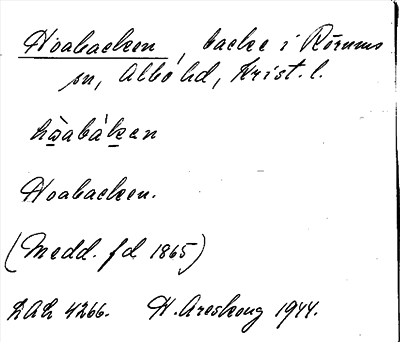 Hoabacken, backe i Rörums
sn, Albo hd, Krist. l.
hòabáken
Hoabacken.
(Medd. fd 1865)
LAL 4266. H. Areskoug 1944.